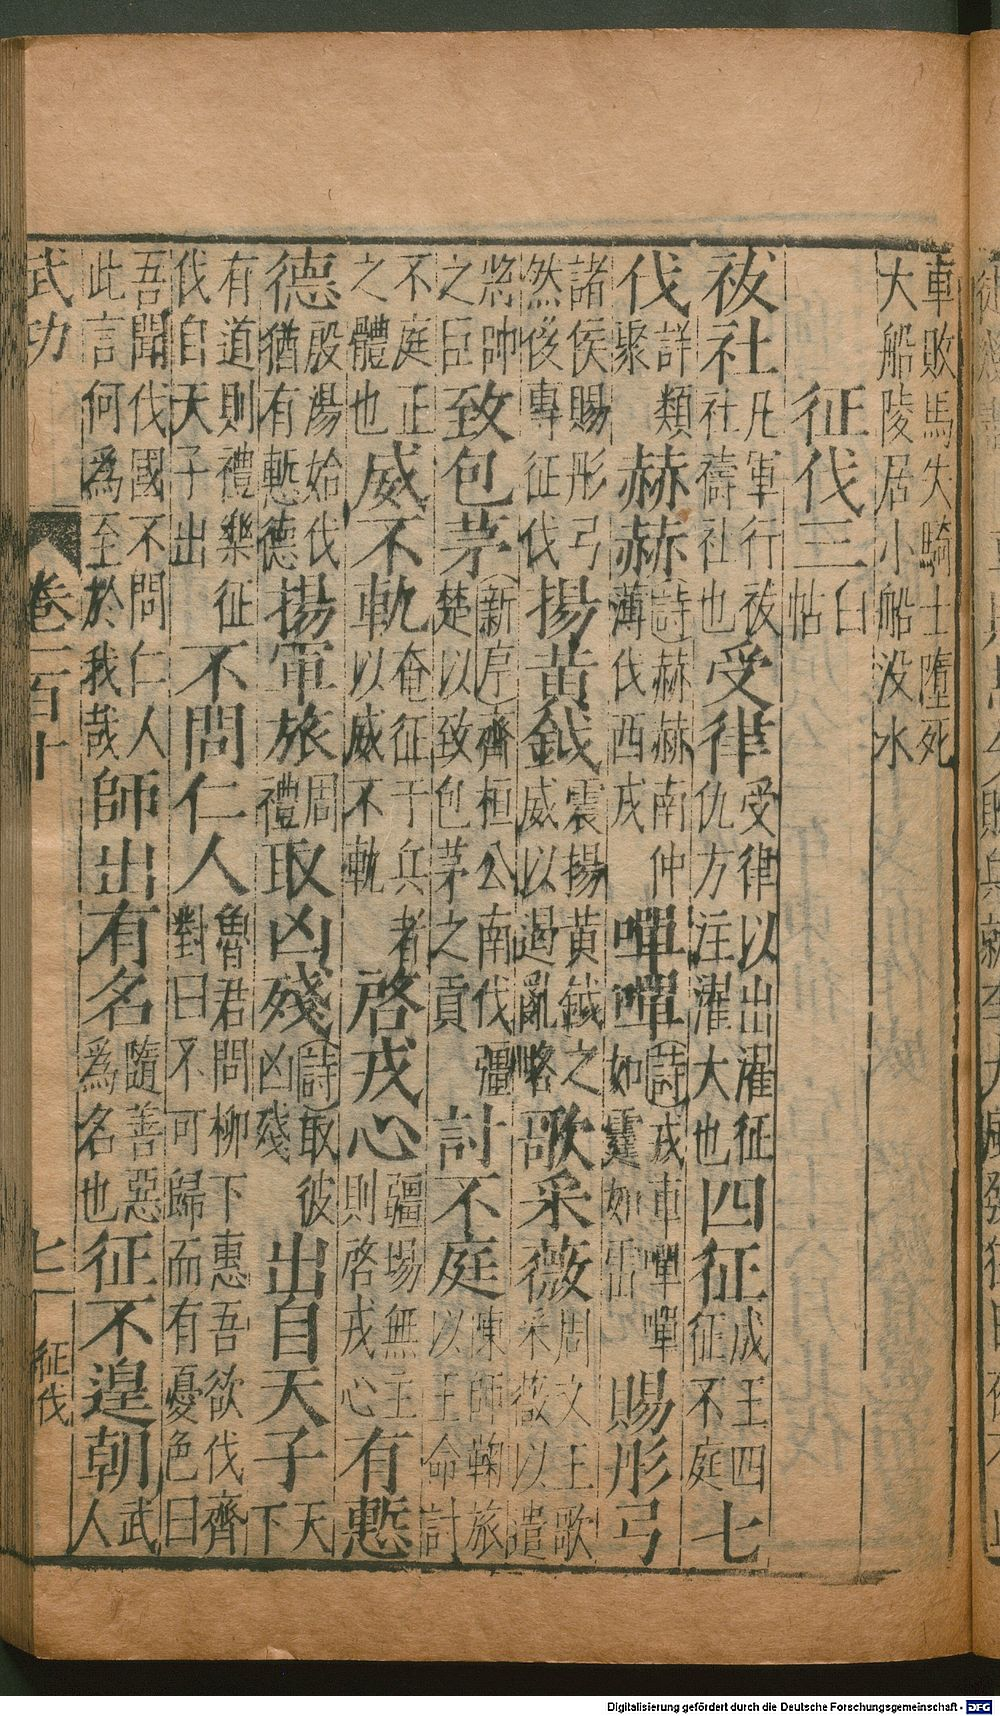 車敗馬失騎士墮死
大船陵居小船没水
征伐三 白帖
祓社 凡軍行祓社禱社也 受律 受律以出濯征仇方注濯大也 四征 成王四征不庭 七
伐 詳類聚 赫赫 詩赫赫南仲薄伐西戎 嘽嘽 詩戎車嘽嘽如霆如雷 賜彤弓
諸侯賜彤弓然後專征伐 揚黃鉞 震揚黃鉞之威以遏亂略 歌采薇 周文王歌采薇以遣
將帥之臣 致包茅 新序齊桓公南伐彊楚以致包茅之貢 討不庭 陳師鞠旅以王命討
不庭正之體也 威不軌 奄征于兵者以威不軌 啓戎心 疆場無主則啓戎心 有慙
德 殷湯始伐猶有慙德 揚軍旅 周禮 取凶殘 詩取彼凶殘 出自天子 天下
有道則禮樂征伐自天子出 不問仁人 魯君問柳下惠吾欲伐齊對曰不可歸而有憂色曰
吾聞伐國不問仁人此言何為至於我哉 師出有名 隨善惡為名也 征不遑朝 武人
武功 卷二百十 七 征伐
Digitalisierung gefördert durch die Deutsche Forschungsgemeinschaft - DFG